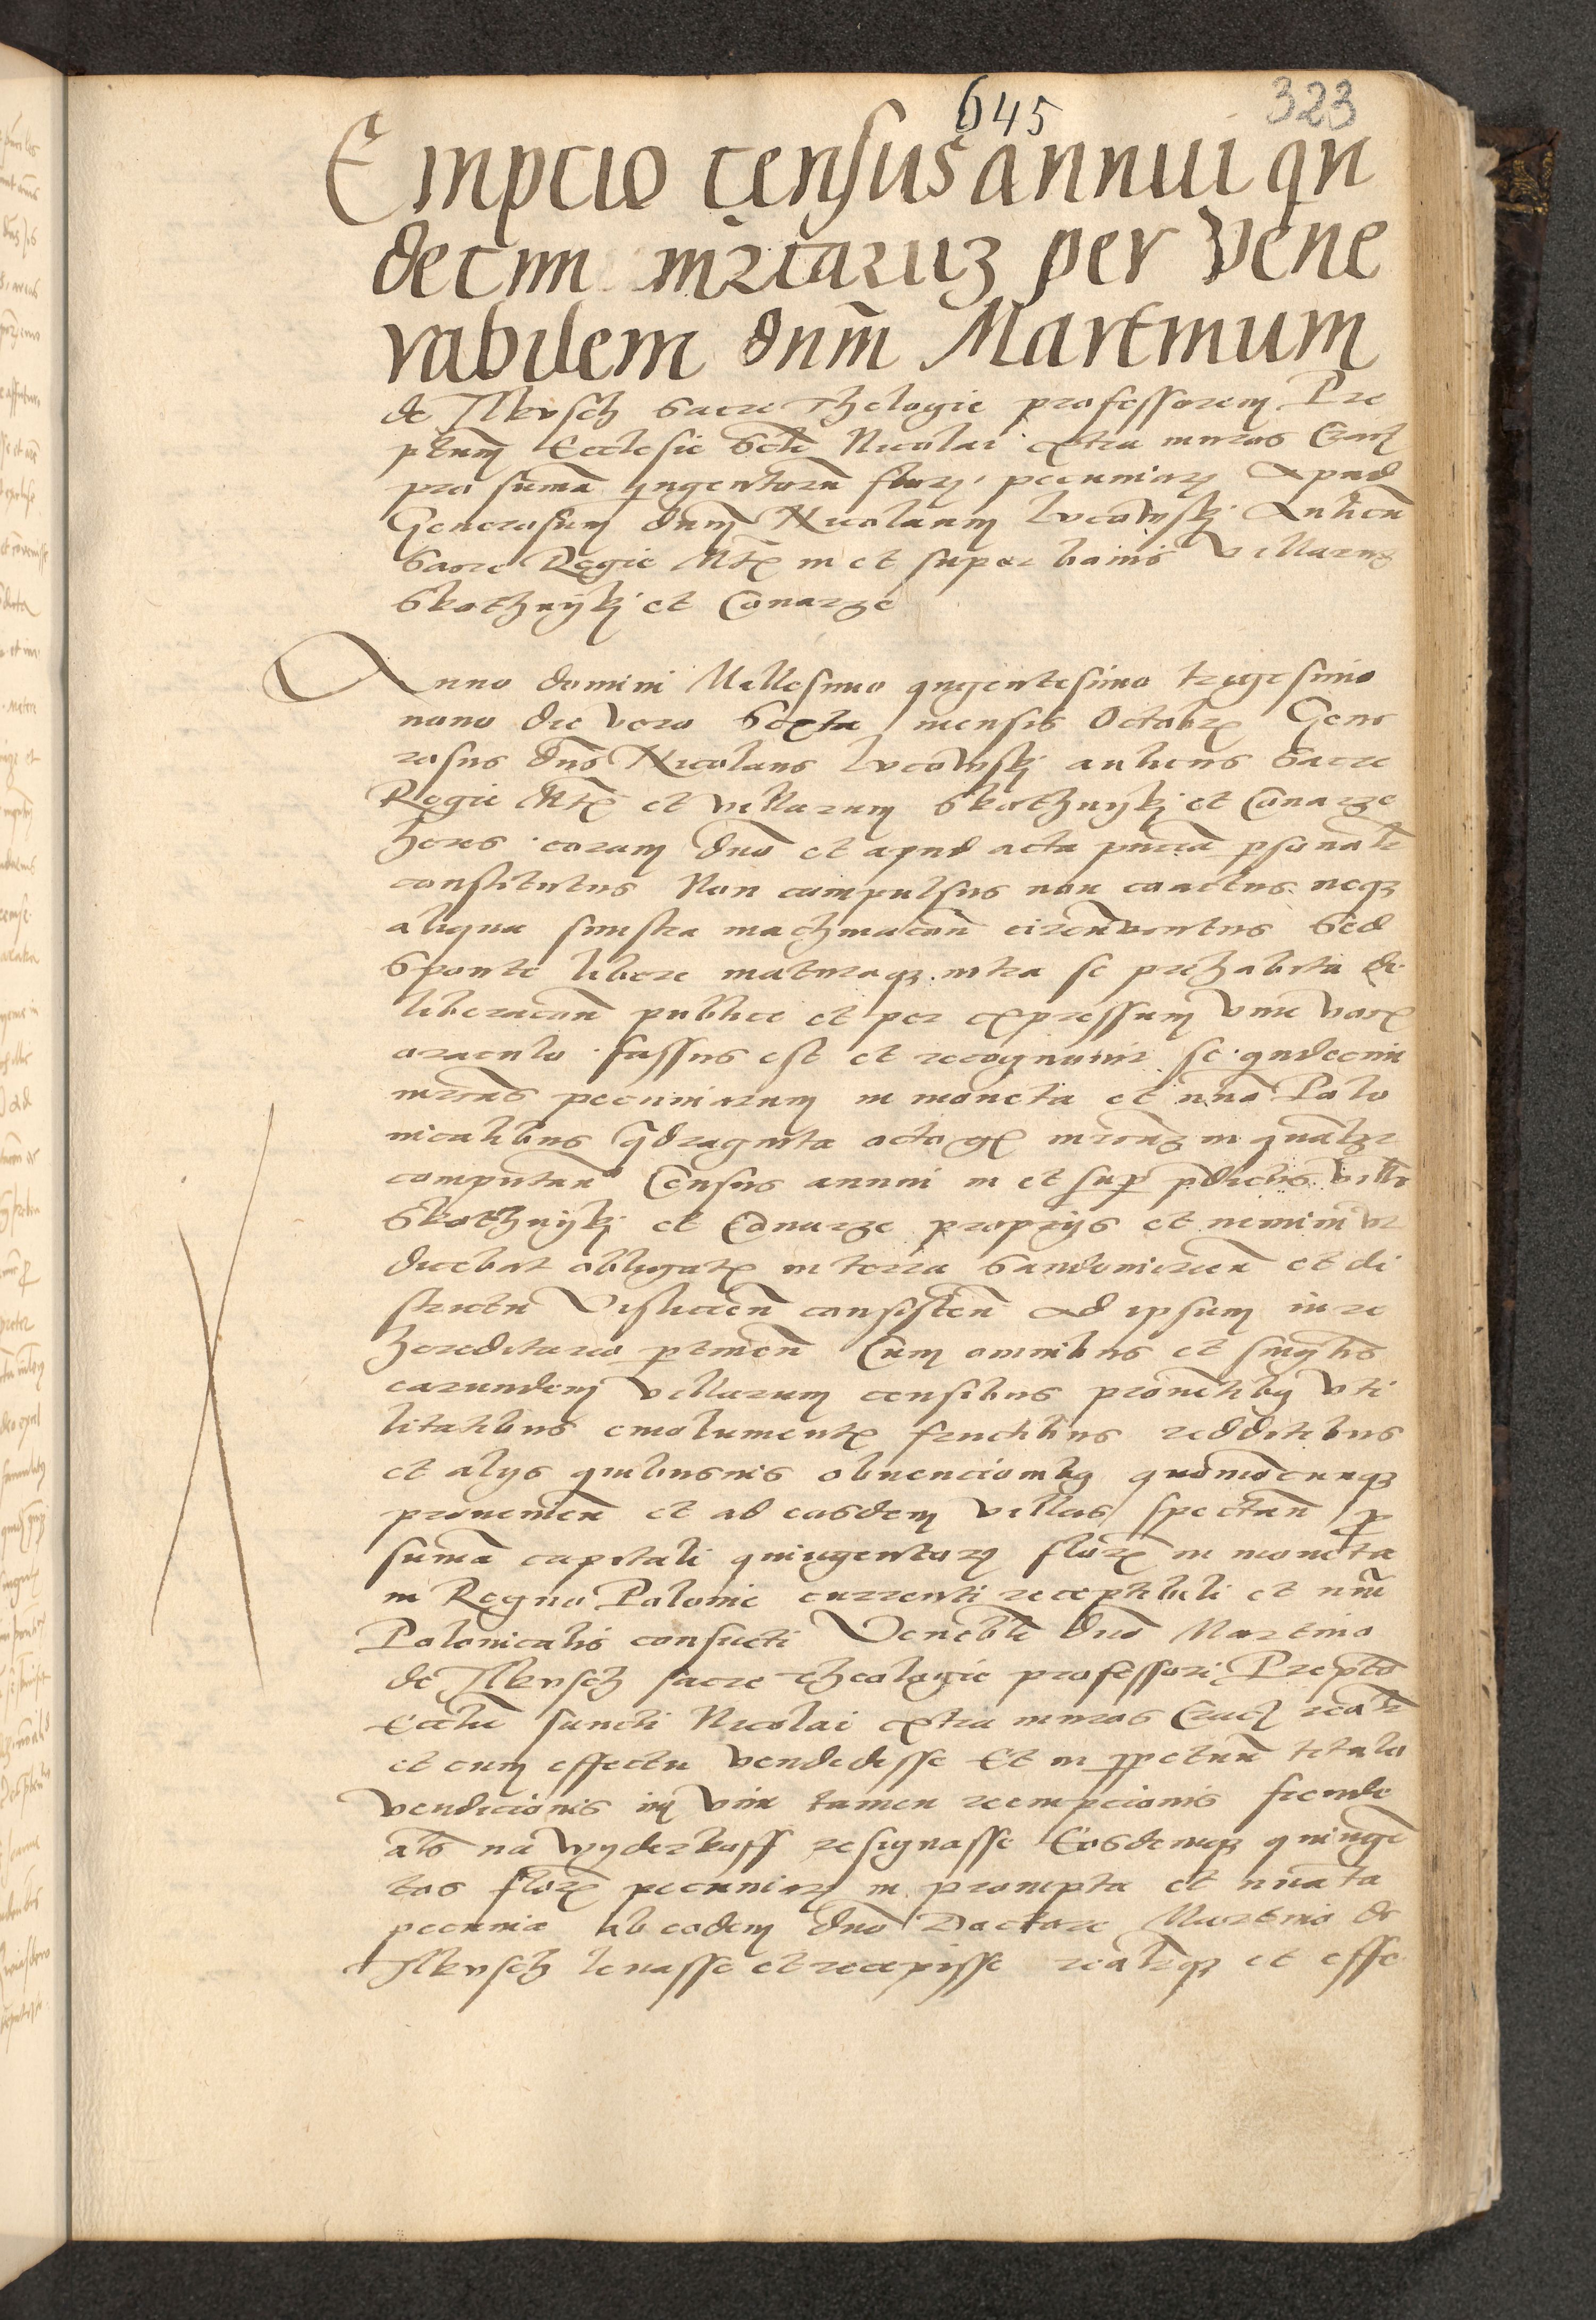 645
323
Empcio census annui qn
decim mrcaruz per Vene
rabilem dnm Martinum
de Ilkusch Sacre Theologie professorem Pre
ptum Ecclesie Scti Nicolai extra muros Crac
pro suma qngentoru florz pecuniarz Apud
Generosum dnm Nicolaum Lucowskj Aulicu
Sacre Regie Mtis in et super bonis Villarum
Skothnykj et Conarze
Anno domini Millesimo qngentesimo trigesimo
nono die vero Sexta mensis Octobris Gene
rosus dns Nicolaus Lucowskj aulicus Sacre
Regie Mtis et villarum Skothnykj et Conarze
heres coram dno et apud acta pncia psonalr
constitutus Non compulsus non coactus neqz
aliqua sinistra machinacone circuventus Sed
Sponte libere maturaqz intra se prehabita de
liberacone publice et per expressum vive vocis
oraculo fassus est et recognovit se qndecim
mrcas pecuniarum in moneta et nuo Polo
nicalibus qdraginta octo gr mrcam in qualz
computan Census annui in et sup pdictis villis
Skothnykj et Conarze proprys et nemini vt
dicebat obligatis in terra Sandomirien et di
strictu Vislicien consisten ad ipsum iure
hereditario ptinen Cum omnibus et singlis
earundem villarum censibus proventibus vti
litatibus emolumentis fructibus redditibus
et alys quibusvis obvencionibus quomocunqz
provenien et ad easdem villas spectan p
suma capitali quingentorum flor in moneta
in Regno Polonie currenti receptibili et nui
Polonicalis consueti Venebli dno Martino
de Ilkusch sacre theologie professori Prepto
Ecclie sancti Nicolai extra muros Crac realr
et cum effectu vendidisse Et in ppetuu titulo
vendicionis in vim tamen reempcionis fiende
als na wyderkaff resignasse Eosdemqz quinge
tos flor pecuniarz in prompta et nuata
pecunia ab eodem dno Doctore Martino de
Ilkusch levasse et recepisse realrqz et effe